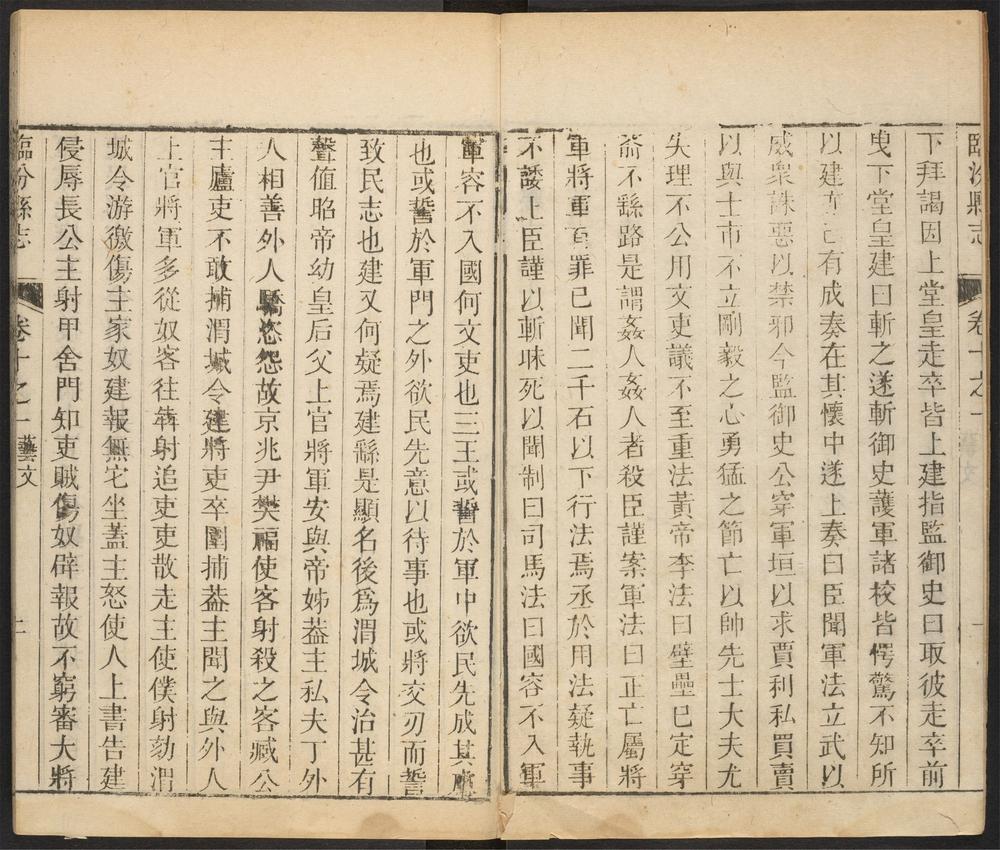 臨汾縣志
卷十之一
下拜謁因上堂皇走卒皆上建指監御史曰取彼走卒前
曳下堂皇建曰斬之遂斬御史護軍諸校皆愕驚不知所
以建亦已有成奏在其懷中遂上奏曰臣聞軍法立武以
威衆誅惡以禁邪今監御史公穿軍垣以求賈利私買賣
以與士市不立剛毅之心勇猛之節亡以帥先士大夫尤
失理不公用文吏議不至重法黃帝李法曰壁壘已定穿
窬不繇路是謂姦人姦人者殺臣謹案軍法曰正亡屬將
軍將軍有罪已聞二千石以下行法焉丞於用法疑執事
不諉上臣謹以斬昧死以聞制曰司馬法曰國容不入軍
軍容不入國何文吏也三王或誓於軍中欲民先成其慮
也或誓於軍門之外欲民先意以待事也或將交刃而誓
致民志也建又何疑焉建繇是顯名後爲渭城令治甚有
聲值昭帝幼皇后父上官將軍安與帝姊葢主私夫丁外
人相善外人驕恣怨故京兆尹樊福使客射殺之客臧公
主廬吏不敢捕渭城令建將吏卒圍捕葢主聞之與外人
上官將軍多從奴客往犇射追吏吏散走主使僕射劾渭
城令游徼傷主家奴建報無它坐蓋主怒使人上書告建
侵辱長公主射甲舍門知吏賊傷奴辟報故不窮審大將
臨汾縣志
卷十之一 藝文
二